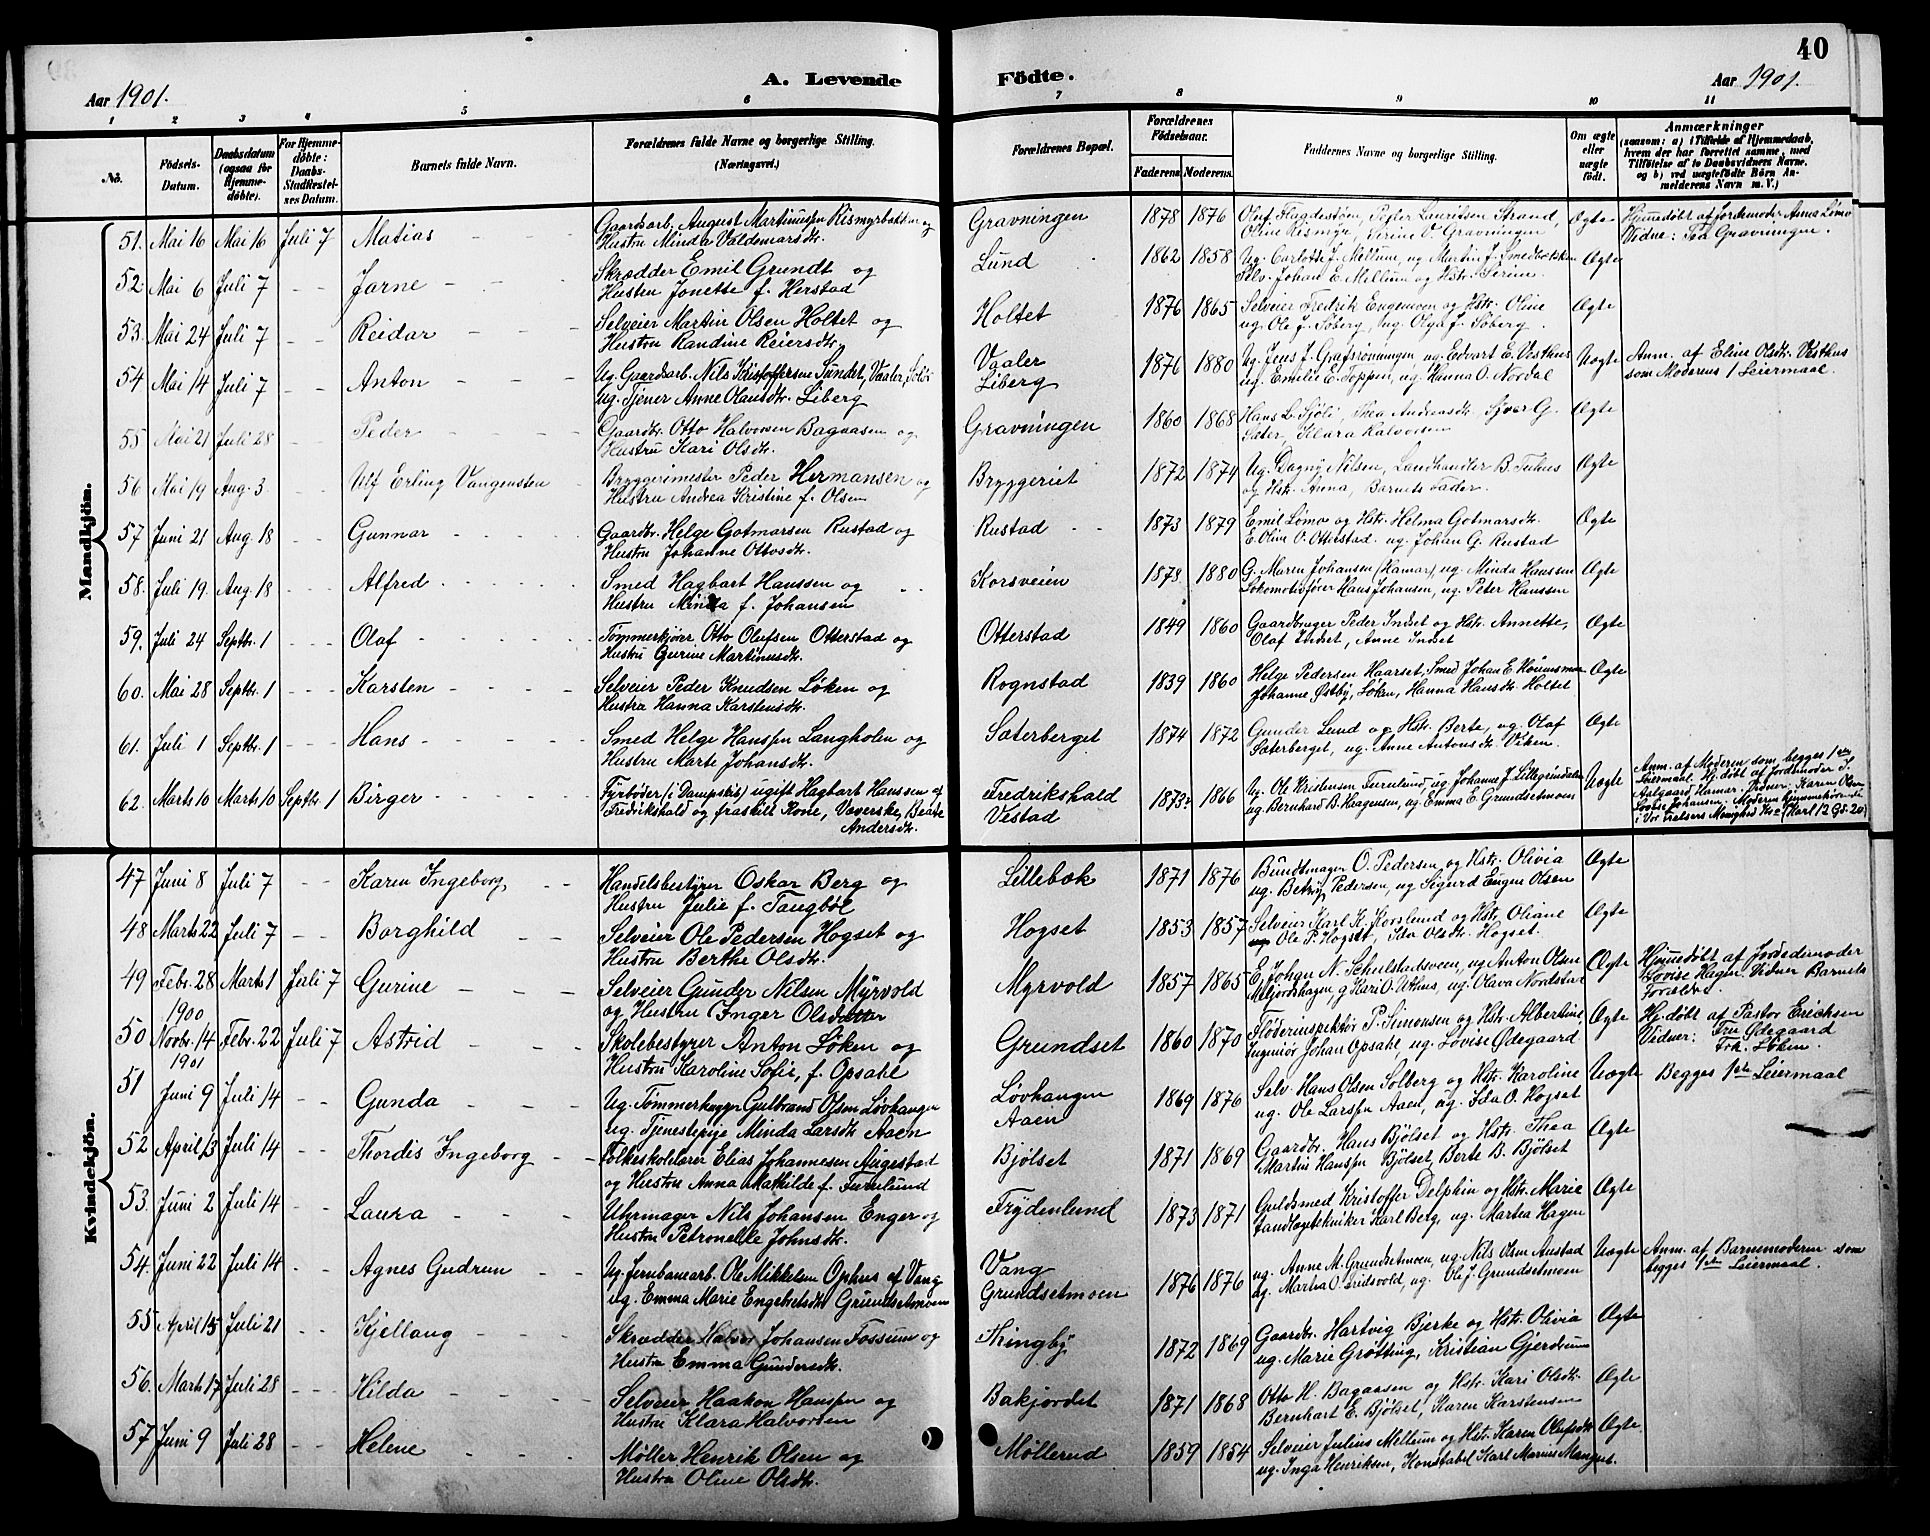 40
Aar 1901.
A. Levende Födte.
Aar 1901.
1 2 3 4 5 6 7 8 9 10 11
No.
Födsels-Datum.
Daabsdatum (ogsaa for Hjemmedöbte).
For Hjemmedöbte: Daabs-Stadfæstelses Datum.
Barnets fulde Navn.
Forældrenes fulde Navne og borgerlige Stilling. (Næringsvei.)
Forældrenes Bopæl.
Forældrenes Födselsaar.
Faderens. Moderens.
Faddernes Navne og borgerlige Stilling.
Om ægte eller uægte födt.
Anmærkninger
(saasom: a) i Tilfælde af Hjemmedaab, hvem der har forrettet samme, med Tilföielse af to Daabsvidners Navne. og b) ved uægtefödte Börn Anmelderens Navn m. V.)
Mandkjön.
51. Mai 16 Mai 16 Juli 7 Matias Gaardsarb. August Martinussen Rismyrbakken og Gravningen 1878 1876 Oluf Flagdestøm, Peter Lauritsen Strand, Ægte Hjemedøbt af Jordemoder Anna Lømo
Hustru Minda Valdemarsdtr. Oline Rismyr, Serine V. Gravningen Vidne: Gravningen.
52. Mai 6 Juli 7 Jarne Skrædder Emil Grundt og Lund 1862 1858 Ug. Carlotte J. Mellum, ug Martin J. Smedbakken Ægte
Hustru Jonette f. Herstad Selv. Johan E. Mellum og Hstr. Serine
53. Mai 24 Juli 7 Reidar Selveier Martin Olsen Holtet og Holtet 1876 1865 Selveier Fredrik Engemoen og Hstr. Oline Ægte
Hustru Randine Reiersdtr. ug. Ole J. Søberg, ug. Olga J. Søberg.
54 Mai 14 Juli 7 Anton Ug. Gaardsarb. Nils Kristoffersen Sundet, Vaaler, Solør Vaaler 1876 1880 Ug. Jens J. Grafsrønningen, ug. Edvart E. Vesthus Uægte Anm. af Eline Olsdtr. Vesthus
ug. Tjener Anne Olausdtr. Liberg Liberg ug. Emilie E. Toppen, ug. Hanna O. Nordal som Moderens 1 Leiermaal.
55 Mai 21 Juli 28 Peder Gaardbr. Otto Halvorsen Bagaasen og Gravningen 1860 1868 Hans L. Sjøli, Thea Andreasdtr. Sjver G. Ægte
Hustru Kari Olsdtr. Sæter, Klara Halvorsen
56 Mai 19 Aug. 3 Ulf Erling Vangensten Bryggerimester Peder Hermansen og Bryggeriet 1872 1874 Ug. Dagny Nilsen, Landhandler B. Tuhus Ægte
Hustru Andrea Kristine f. Olsen og Hstr. Anna, Barnets Fader.
57 Juni 21 Aug. 18 Gunnar Gaardbr. Helge Gotmarsen Rustad og Rustad 1873 1879 Emil Lømo og Hstr. Helma Gotmarsdtr. Ægte
Hustru Johanne Ottosdtr. E. Oline O. Otterstad. ug. Johan G. Rustad
58. Juli 19. Aug. 18 Alfred Smed Hagbart Hanssen og Korsveien 1878 1880 G. Maren Johansen (Hamar), ug. Minda Hanssen Ægte
Hustru Minda f. Johansen Lokomotivfører Hans Johansen, ug. Peter Hanssen
59. Juli 24 Septbr. 1 Olaf Tømmerkjører Otto Olufsen Otterstad og Otterstad 1849 1860 Gaardbruger Peder Indset og Hstr. Annette, Ægte
Hustru Gurine Martinusdtr. Olaf Indset, Anne Indset
60. Mai 28 Septbr. 1 Karsten Selveier Peder Knudsen Løken og Rognstad 1839 1860 Helge Pedersen Haarset, Smed Johan E. Ægte
Hustru Hanna Karstensdtr. Johanne Østby, Løken, Hanna Hansdtr. Holtet
61. Juli 1 Septbr. 1 Hans Smed Helge Hanssen Langholen og Sæterberget 1874 1872 Gunder Lund og Hstr. Berte, ug. Olaf Ægte
Hustru Marte Johansdtr. Sæterberget, ug. Anne Antonsdtr. Viken.
62. Marts 10 Marts 10 Septbr. 1 Birger Fyrbøder (i Dampskib) ugift Hagbart Hanssen af Fredrikshald 1873 1866 Ug. Ole Kristensen Furulund, ug. Johanne J. Lillegrindalen Uægte Anm. af Moderen som begges 1ste
Fredrikshald og fraskilt Kone, Væverske, Beate Andersdtr. Vestad ug. Bernhard B. Haagensen, ug. Emma E. Grundsetmoen Leiermaal. Hj. døbt af Jordemoder S. Aalgaard Hamar. Vidner: Karen Olsen Lovise Johansen. Moderen hjemmehørende i Vor Frelsers Menighed Kra (Karl 12 Gd. 20)
Kvindekjön.
47 Juni 8 Juli 7 Karen Ingeborg Handelsbestyrer Oskar Berg og Lillebæk 1871 1876 Bundtmager O. Pedersen og Hstr. Olivia Ægte
Hustru Julie f. Tangbøl ug. Betsy Pedersen, ug Sigurd Eugen Olsen
48 Marts 22 Juli 7 Borghild Selveier Ole Pedersen Hogset og Hogset 1853 1857 Selveier Karl K. Korslund og Hstr. Oliane Ægte
Hustru Berthe Olsdtr. Ole P. Hogset, Ida Olsdtr. Hogset.
49 Febr. 28 Marts 1 Juli 7 Gurine Selveier Gunder Nilsen Myrvold Myrvold 1857 1865 E. Johan N. Schulstadsveen, ug Anton Olsen Ægte Hjemedøbt af Jordemoder
og Hustru Inger Olsdatter Meljordshagen, g Kari O. Uthus, ug. Olava Nordstad Lovise Hagen Vidner Barnets Forældre.
50 1900 Novbr. 14 Febr. 22 Juli 7 Astrid Skolebestyrer Anton Løken og Grundset 1860 1870 Fløderinspektør P. Simonsen og Hstr. Albertine, Ægte Hj. døbt af Pastor Erichsen
Hustru Karoline Sofie, f. Opsahl Ingeniør Johan Opsahl, ug. Lovise Ødegaard Vidner: Fru Ødegaard Frk. Løken.
51 1901 Juni 9 Juli 14 Gunda Ug. Tømmerhugger Gulbrand Olsen Løvhaugen Løvhaugen 1869 1876 Selv. Hans Olsen Solberg og Hstr. Karoline Uægte Begges 1ste Leiermaal
ug. Tjenestepige Minda Larsdtr. Aaen Aaen ug. Ole Larssen Aaen, ug. Ida O. Hogset
52 April 13 Juli 14 Thordis Ingeborg Folkeskolelærer Elias Johannesen Augestad Bjølset 1871 1869 Gaardbr. Hans Bjølset og Hstr. Thea Ægte
og Hustru Anna Mathilde f. Furulund Martin Hanssen Bjølset, Berte B. Bjølset
53. Juni 2 Juli 14 Laura Uhrmager Nils Johansen Enger og Frydenlund 1873 1871 Guldsmed Kristoffer Delphin og Hstr. Marie Ægte
Hustru Petronelle Johnsdtr. Tandlægetekniker Karl Berg, ug. Martea Hagen
54. Juni 22 Juli 14 Agnes Gudrun Ug. Jernbanearb. Ole Mikkelsen Ophus af Vang Vang 1876 1876 ug. Anne M. Grundsetmoen, ug. Nils Olsen Austad Uægte Anm. af Barnemoderen som
ug. Emma Marie Engebretsdtr. Grundsetmoen Grundsetmoen ug. Martha O. , ug. Ole J. Grundsetmoen begges 1ste Leiermaal.
55 April 15 Juli 21 Kjellaug Skrædder Halvor Johansen Fossum og Kringby 1872 1869 Gaardbr. Hartvig Bjerke og Hstr. Olivia Ægte
Hustru Emma Gundersdtr. ug. Marie Grøtting, Kristian Gjerdrum
56. Marts 17 Juli 28 Hilda Selveier Haakon Hanssen og Bakjordet 1871 1868 Otto H. Bagaasen og Hstr. Kari Olsdtr. Ægte
Hustru Klara Halvorsen Bernhart E. Bjølset, Karen Karstensen
57 Juni 9 Juli 28 Helene Møller Henrik Olsen og Møllerud 1859 1854 Selveier Julius Mellum og Hstr. Karen Olufsdtr. Ægte
Hustru Oline Olsdtr. ug. Inga Henriksen, Konstabel Karl Marius Mangset.